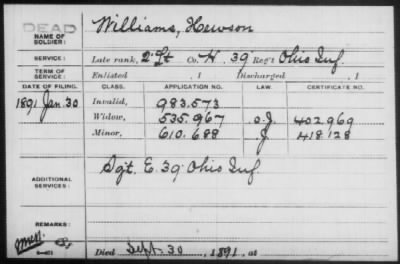 DEAD
NAME OF SOLDIER: Williams, Hewson
SERVICE: Late rank, 2" Lt Co. H, 39 Reg't Ohio Inf.
TERM OF SERVICE: Enlisted , 1 Discharged , 1
DATE OF FILING. CLASS. APPLICATION NO. LAW. CERTIFICATE NO.
1891 Jan. 30 Invalid, 983.573
Widow, 535.967 O.J. 402969
Minor, 610.688 J. 418128
ADDITIONAL SERVICES: Sgt. E. 39 Ohio Inf.
REMARKS:
Died Sept. 30, 1891, at